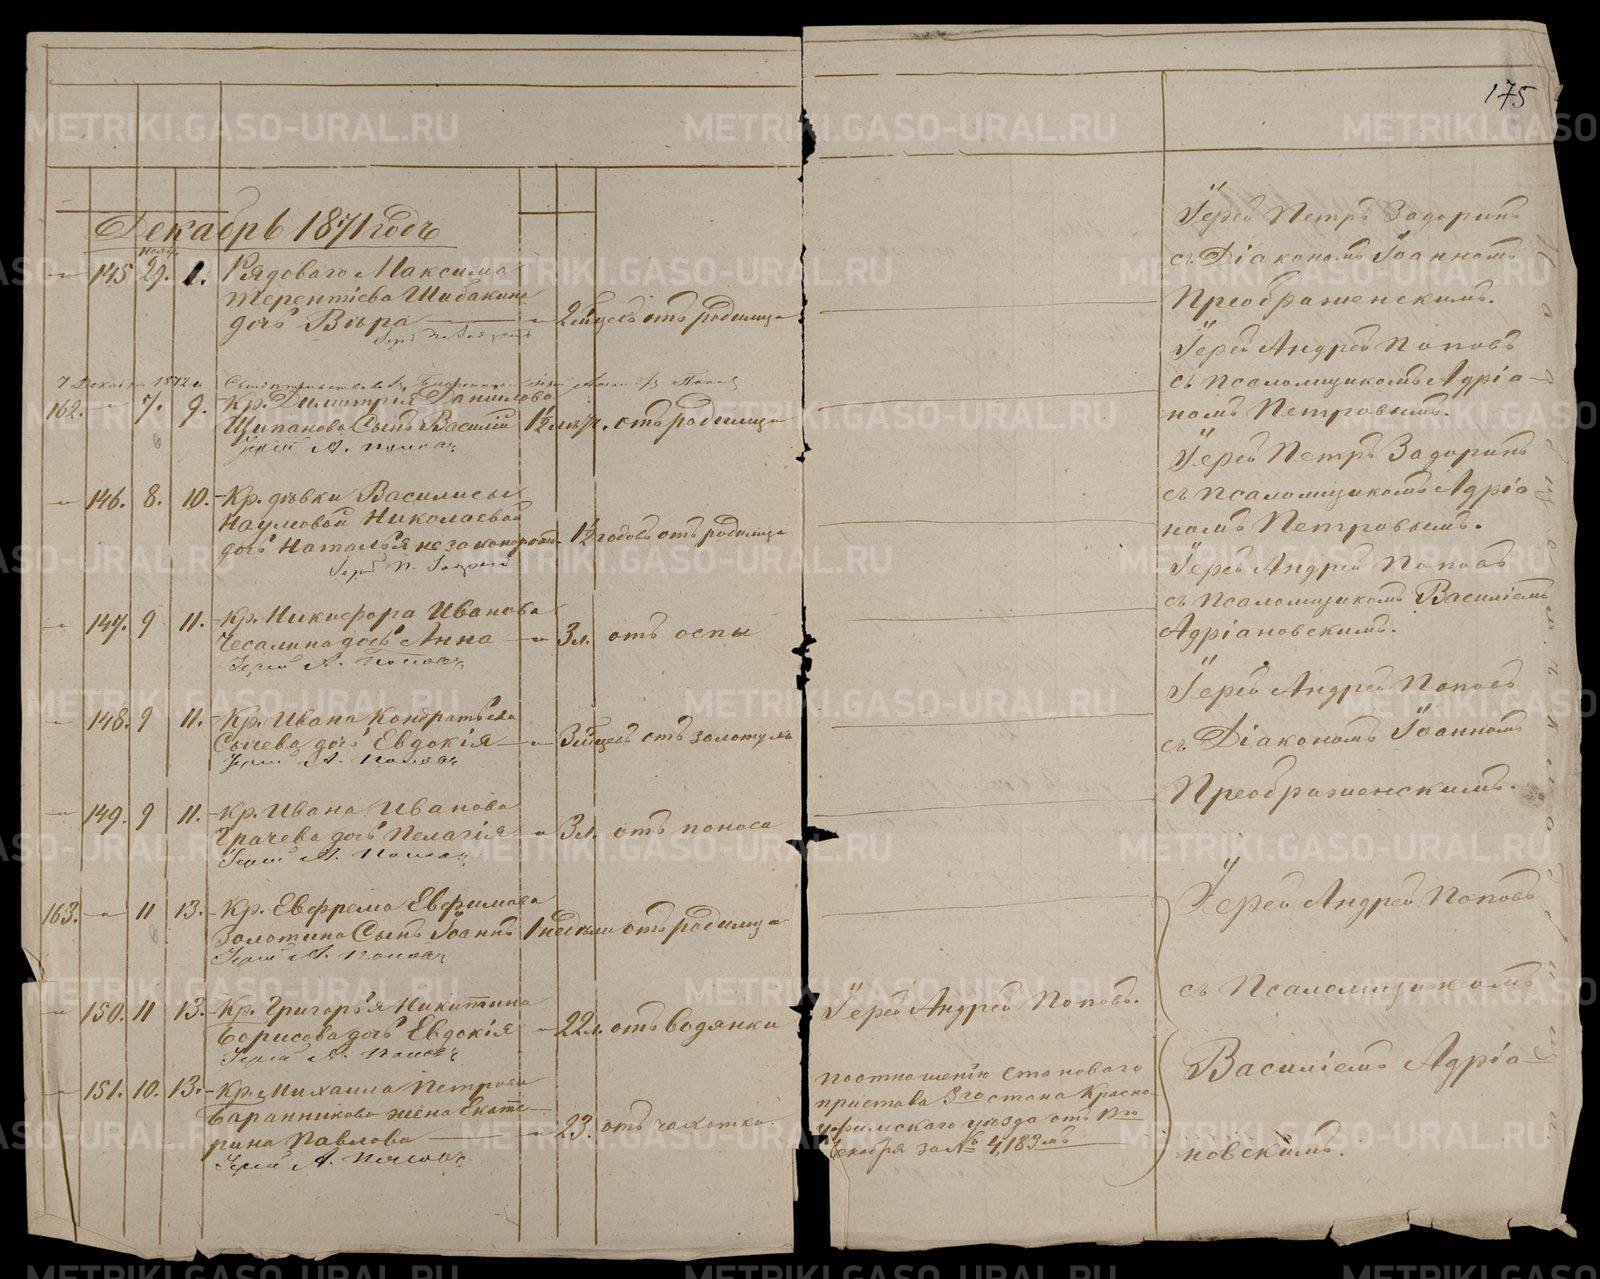 175
Декабрь 1871 годъ
145 29. 1. Рядоваго Максима
Терентіева Шибакина
дочь Вѣра 2 мѣсец. отъ родимца
162. 7. 9. Кр. Димитрія Данилова
Щипанова Сынъ Василій 1½ мѣс. отъ родимца
Іерей А. Поповъ
146. 8. 10. Кр. дѣвки Василисы
Наумовой Николаевой
дочь Наталья незаконорожд. 1½ годовъ отъ родимца
147. 9 11. Кр. Никифора Иванова
Чесалина дочь Анна 3 л. отъ оспы
Іерей А. Поповъ
148. 9 11. Кр. Ивана Кондратьева
Сычева дочь Евдокія 3 мѣсец. отъ золотухи
Іерей А. Поповъ
149. 9 11. Кр. Ивана Иванова
Грачева дочь Пелагія 3 л. отъ поноса
Іерей А. Поповъ
163. 11 13. Кр. Евфрема Евфимова
Золотина Сынъ Іоаннъ 1 недѣли отъ родимца
Іерей А. Поповъ
150. 11 13. Кр. Григорья Никитина
Борисова дочь Евдокія 22 л. отъ водянки
Іерей А. Поповъ
151. 10. 13. Кр. Михаила Петрова
Баранникова жена Екате-
рина Павлова 23. отъ чахотки.
Іерей А. Поповъ
Іерей Андрей Поповъ.
по отношенію Становаго
пристава 3го стана Красно-
уфимскаго уѣзда отъ
Декабря за № 4,183мъ
Іерей Петръ Задоринъ
съ Діакономъ Іоанномъ
Преображенскимъ.
Іерей Андрей Поповъ
съ псаломщикомъ Адріа-
номъ Петровымъ.
Іерей Петръ Задоринъ
съ псаломщикомъ Адріа
номъ Петровымъ.
Іерей Андрей Поповъ
съ псаломщикомъ Василіемъ
Адріановскимъ.
Іерей Андрей Поповъ
съ Діакономъ Іоанномъ
Преображенскимъ.
Іерей Андрей Поповъ
съ Псаломщикомъ
Василіемъ Адріа-
новскимъ.
METRIKI.GASO-URAL.RU